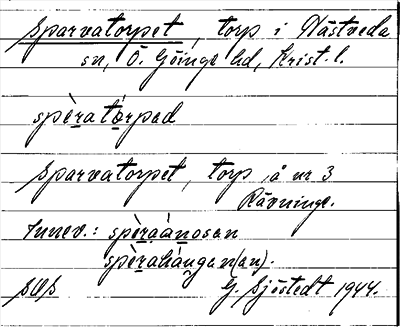 Sparvatorpet, torp i Nästveda
sn, Ö. Göinge hd, Krist. l.
spèratårpad
Sparvatorpet, torp å nr 3
Rävninge.
Innev.: spèraánosan
spèraháŋgan(an).
G. Sjöstedt 1944.